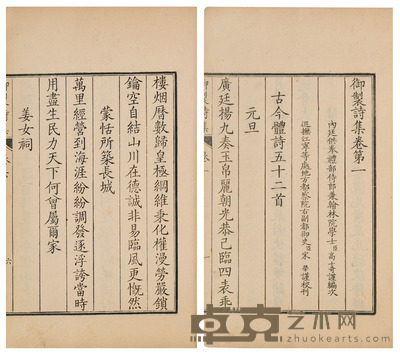 御製詩集卷第一
內廷供奉禮部侍郎兼翰林院學士臣高士奇謹編次
巡撫江寧等處地方都察院右副都御史臣宋犖謹校刊
古今體詩五十二首
元旦
廣廷揚九奏玉帛麗朝光恭己臨四表乘
樓烟曆數歸皇極綱維秉化權漫勞嚴鎖
鑰空自結山川在德誠非易臨風更慨然
蒙恬所築長城
萬里經營到海涯紛紛調發逐浮誇當時
用盡生民力天下何曾屬爾家
姜女祠
六
卓克艺术网
www.zhuokearts.com